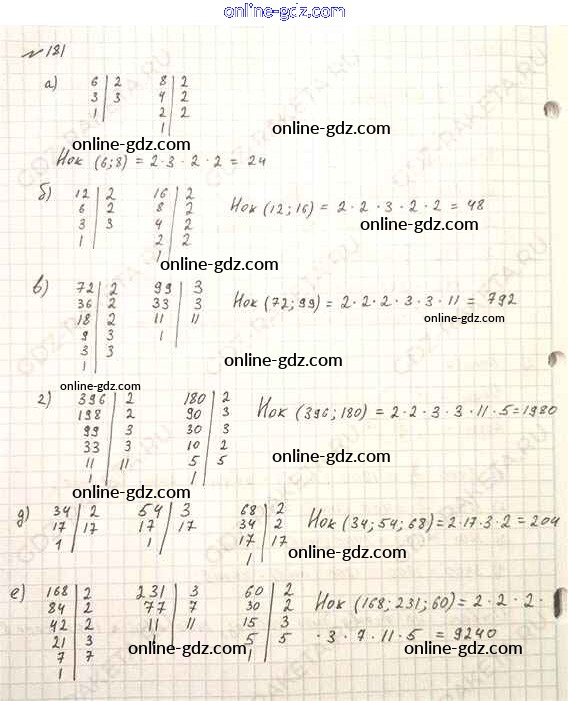 online-gdz.com
№ 181
а) 6 | 2   8 | 2
3 | 3   4 | 2
1 |   2 | 2
1 |
online-gdz.com
Нок (6;8) = 2·3·2·2 = 24
online-gdz.com
б) 12 | 2   16 | 2   Нок (12;16) = 2·2·3·2·2 = 48
6 | 2   8 | 2
3 | 3   4 | 2
online-gdz.com
1 |   2 | 2
1 |
online-gdz.com
в) 72 | 2   99 | 3   Нок (72;99) = 2·2·2·3·3·11 = 792
36 | 2   33 | 3
18 | 2   11 | 11
online-gdz.com
9 | 3   1 |
3 | 3
1 |
online-gdz.com
online-gdz.com
г) 396 | 2   180 | 2   Нок (396;180) = 2·2·3·3·11·5=1980
198 | 2   90 | 3
99 | 3   30 | 3
33 | 3   10 | 2
online-gdz.com
11 | 11   5 | 5
1 |   1 |
online-gdz.com
д) 34 | 2   54 | 3   68 | 2   Нок (34;54;68)=2·17·3·2=204
17 | 17   17 | 17   34 | 2
1 |   1 |   17 | 17
1 |
online-gdz.com
е) 168 | 2   231 | 3   60 | 2   Нок (168;231;60)= 2·2·2·
84 | 2   77 | 7   30 | 2
42 | 2   11 | 11   15 | 3   ·3·7·11·5 = 9240
21 | 3   5 | 5
online-gdz.com
online-gdz.com
7 | 7   1 |
1 |
GDZ-RAKETA.RU